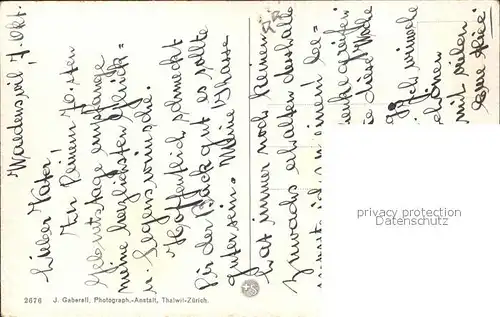 Waedenswil, 7. Okt.
Lieber Vater!
Zu Deinem 70. sten
Geburtstage empfange
meine herzlichsten Glück=
u. Segenswünsche.
Hoffentlich schmeckt
Dir der Back gut es sollte
guter sein. Meine Chasse
hat immer noch keinen
Zuwachs erhalten deshalb
ich in einem be=
diese Woche
Ich wünsche
schönen
mit vielen
Eure
privacy protection
watermark
2676 J. Gaberell, Photograph.-Anstalt, Thalwil-Zürich.